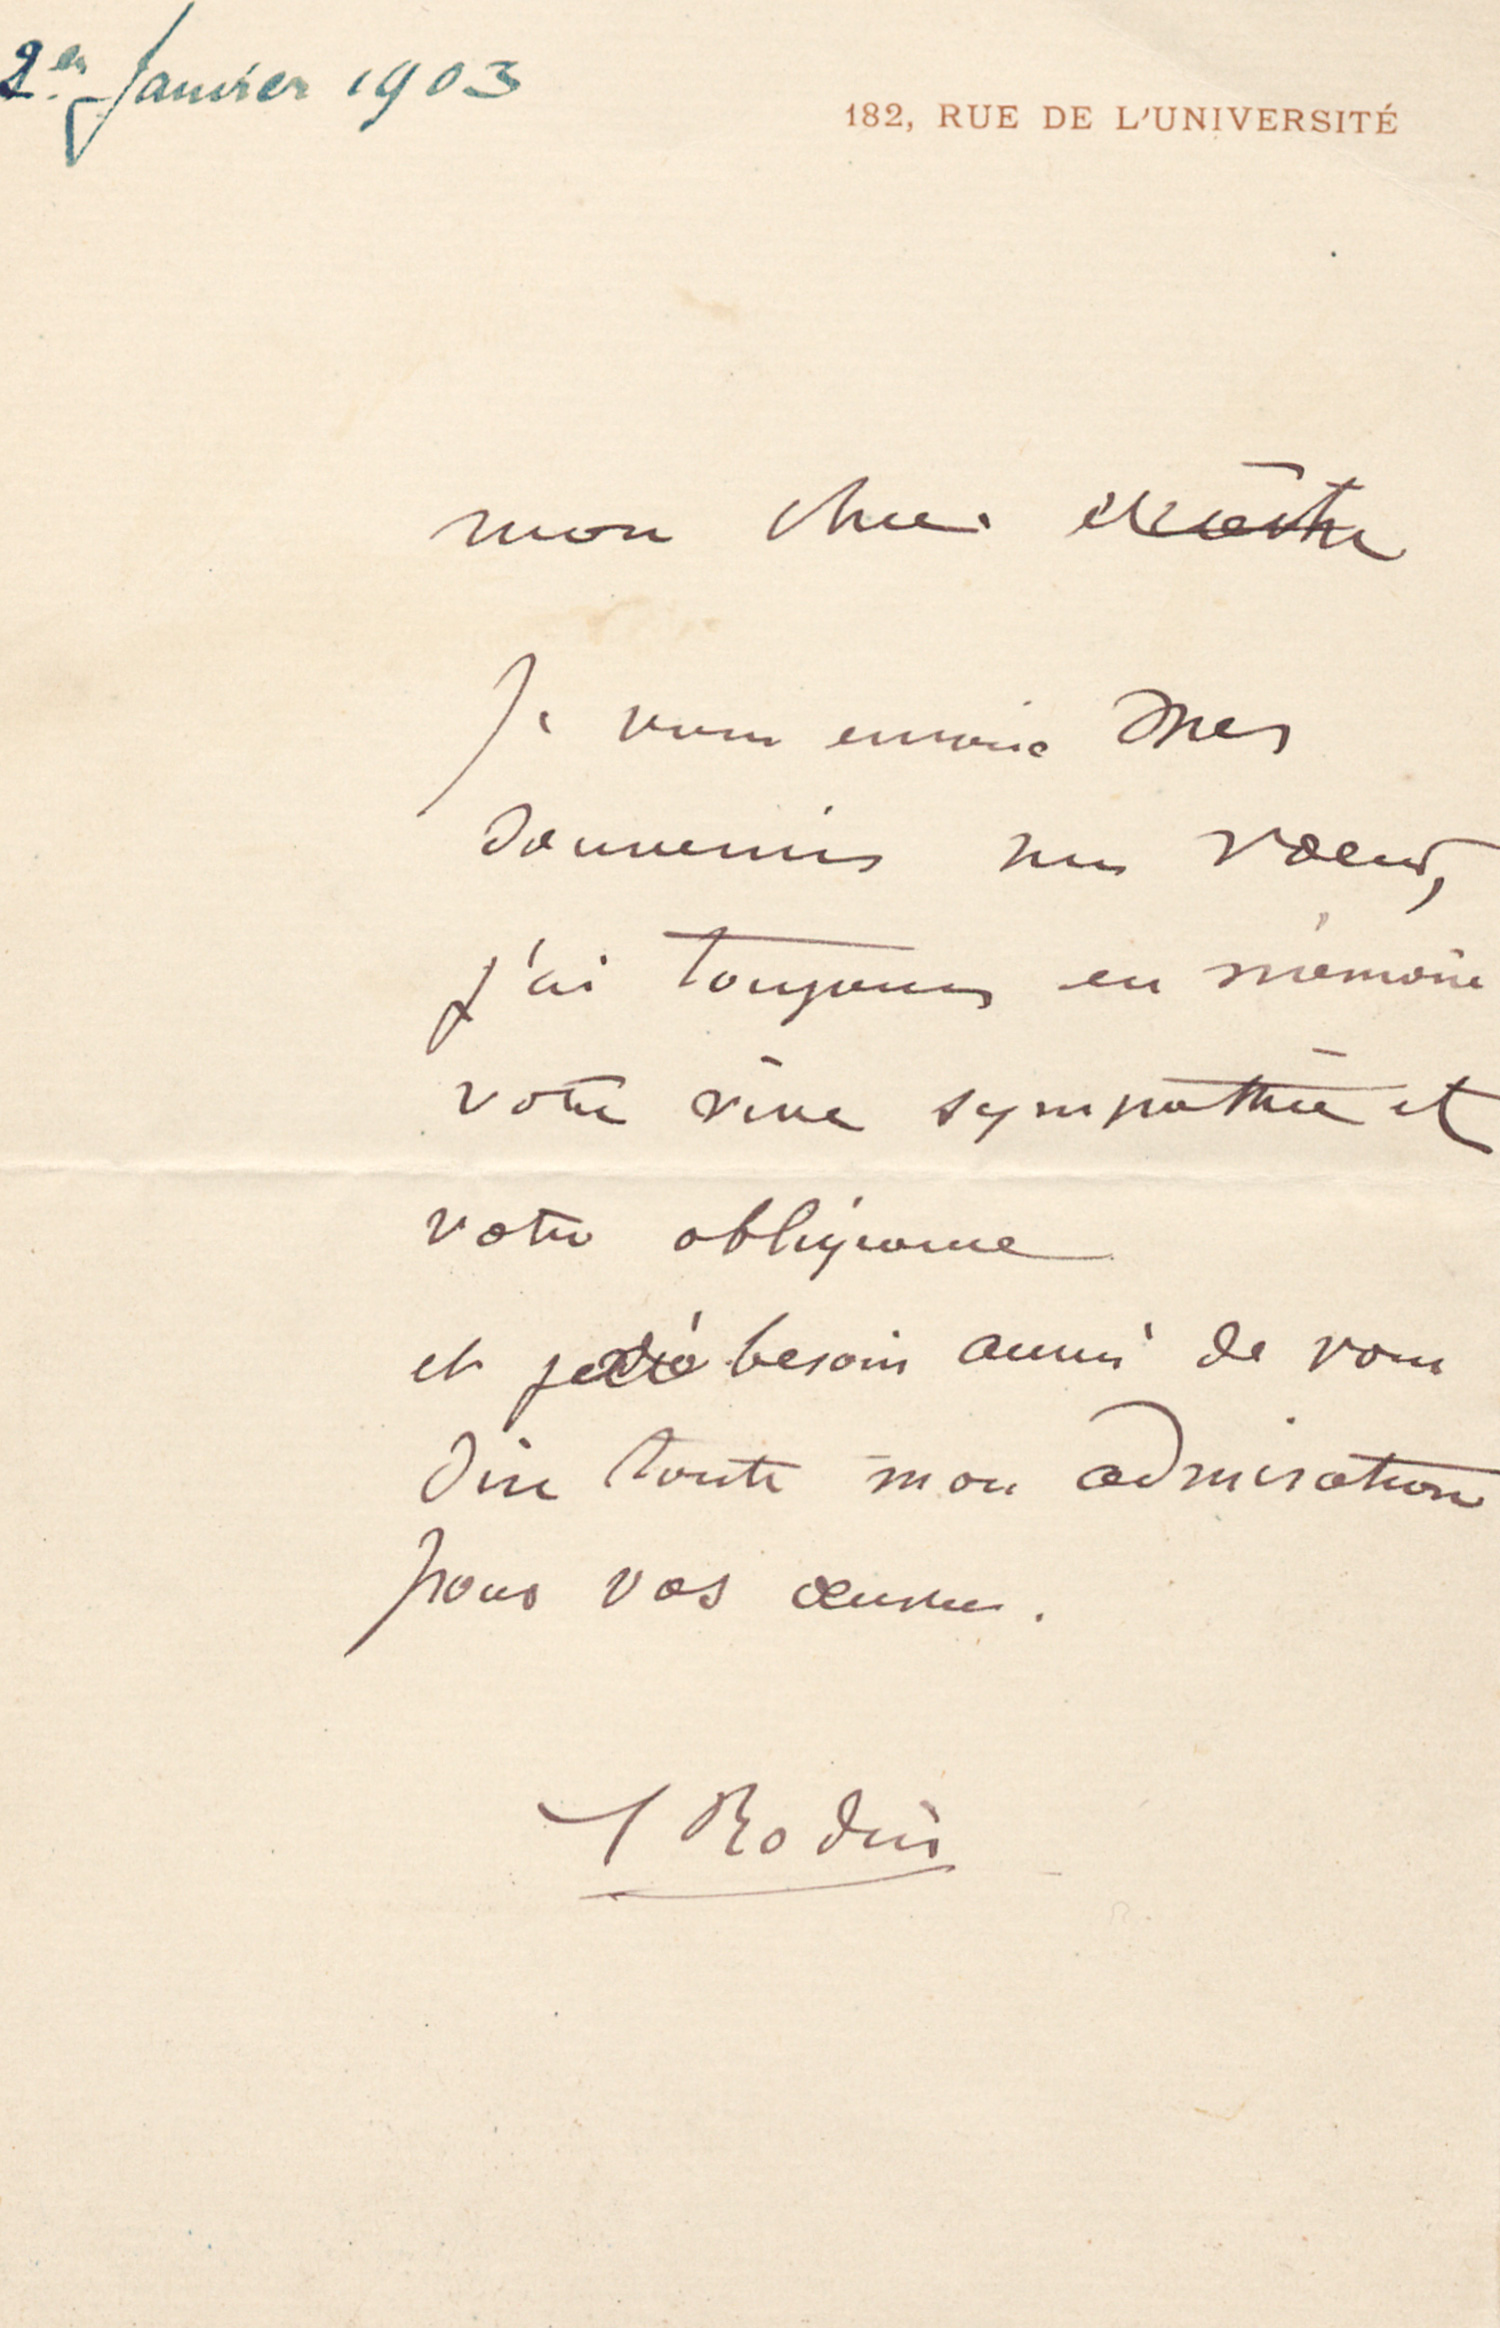 2er Janvier 1903
182, RUE DE L'UNIVERSITÉ
mon cher
Je vous envoie mes
souvenirs mes vœux,
j'ai toujours en mémoire
votre vive sympathie et
votre obligeance
et besoin aussi de vous
dire toute mon admiration
pour vos œuvres.
A Rodin